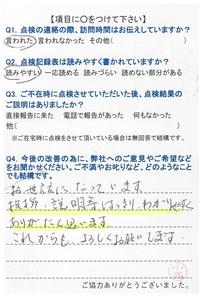 【項目に〇をつけて下さい】
Q1. 点検の連絡の際、訪問時間はお伝えしていますか?
言われた 言われなかった その他( )
Q2. 点検記録表は読みやすく書かれていますか?
読みやすい 一応読める 読みづらい 読めない部分がある
Q3. ご不在時に点検させていただいた後、点検結果の
ご説明はありましたか?
直接報告に来た 電話で報告があった 何もなかった
他( )
※ご在宅時に点検をさせて頂いている場合は無回答で結構です。
Q4. 今後の改善の為に、弊社へのご意見やご希望など
をお聞かせください。ご不満やお叱りなど、どのようなこと
でも結構です。
お世話になっています。
挨拶、説明等はっきり、わかりやすく
ありがたく思います
これからも よろしくお願いします。
ご協力ありがとうございました。